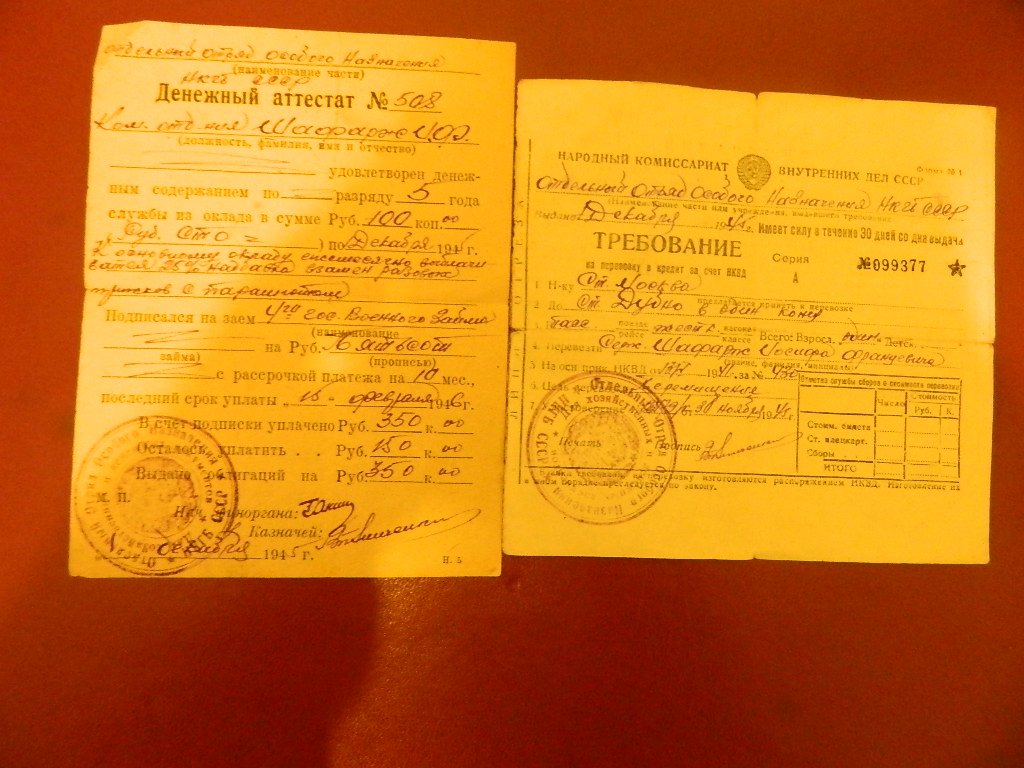 отдельный отряд особого назначения
(наименование части)
НКГБ СССР
Денежный аттестат № 508
Ком. отд-ния Шафарж И.Ф.
(должность, фамилия, имя и отчество)
удовлетворен денеж-
ным содержанием по разряду 5 года
службы из оклада в сумме Руб. 100 коп. 00
( Руб. Сто = ) по Декабря 194 г.
к основному окладу
25% надбавка взамен
Подписался на заем 4го Гос. Военного Займа
(наименование
на Руб. Пятьсот
займа) (прописью)
с рассрочкой платежа на 10 мес.,
последний срок уплаты 15 февраля 1946 г.
В счет подписки уплачено Руб. 350 к. 00
Осталось уплатить . . Руб. 150 к. 00
Выдано облигаций на Руб. 350 к. 00
М. П.
Нач. финоргана:
Казначей:
декабря 1945 г.
Н. 5
НАРОДНЫЙ КОМИССАРИАТ ВНУТРЕННИХ ДЕЛ СССР
Форма № 1
Отдельный Отряд Особого Назначения НКГБ СССР
Наименование части или учреждения, выдавшего требование
Выдано Декабря 194 г. Имеет силу в течение 30 дней со дня выдачи
ТРЕБОВАНИЕ
на перевозку в кредит за счет НКВД
Серия
А
№099377
1. Н-ку Ст. Москва
предлагается принять к перевозке
2. До Ст. Дубно в один конец
3. поезд вагоне
классе Всего: Взросл. один Детск.
4. Перевезти Серж. Шафарж Иосифа Францевича
(звание, фамилия, инициалы)
5. На осн прик. НКВД от 194 г. за №
6. Цель перемещение
30 ноября 1945
Печать Подпись
Отметка службы сборов о стоимости перевозки
Число Стоимость
Руб. К.
Стоим. билета
Ст. плацкарт.
Сборы
ИТОГО
Бланки требований на перевозку изготовляются распоряжением НКВД. Изготовление их
в ином порядке преследуется по закону.